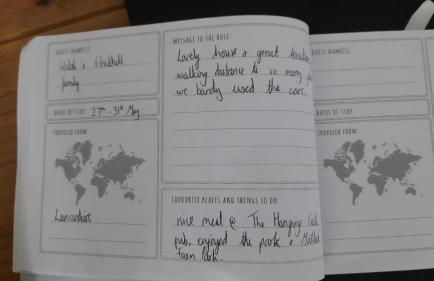 GUEST NAME(S)
Welch &
family
DATES OF STAY: 27th - 31st May
TRAVELED FROM:
Lancashire
MESSAGE TO THE HOST:
Lovely house & great location
walking distance to so many
we barely used the cars.
FAVOURITE PLACES AND THINGS TO DO:
nice meal @ The Hanging Gate
pub, enjoyed the park &
farm
GUEST NAME(S)
DATES OF STAY:
TRAVELED FROM: